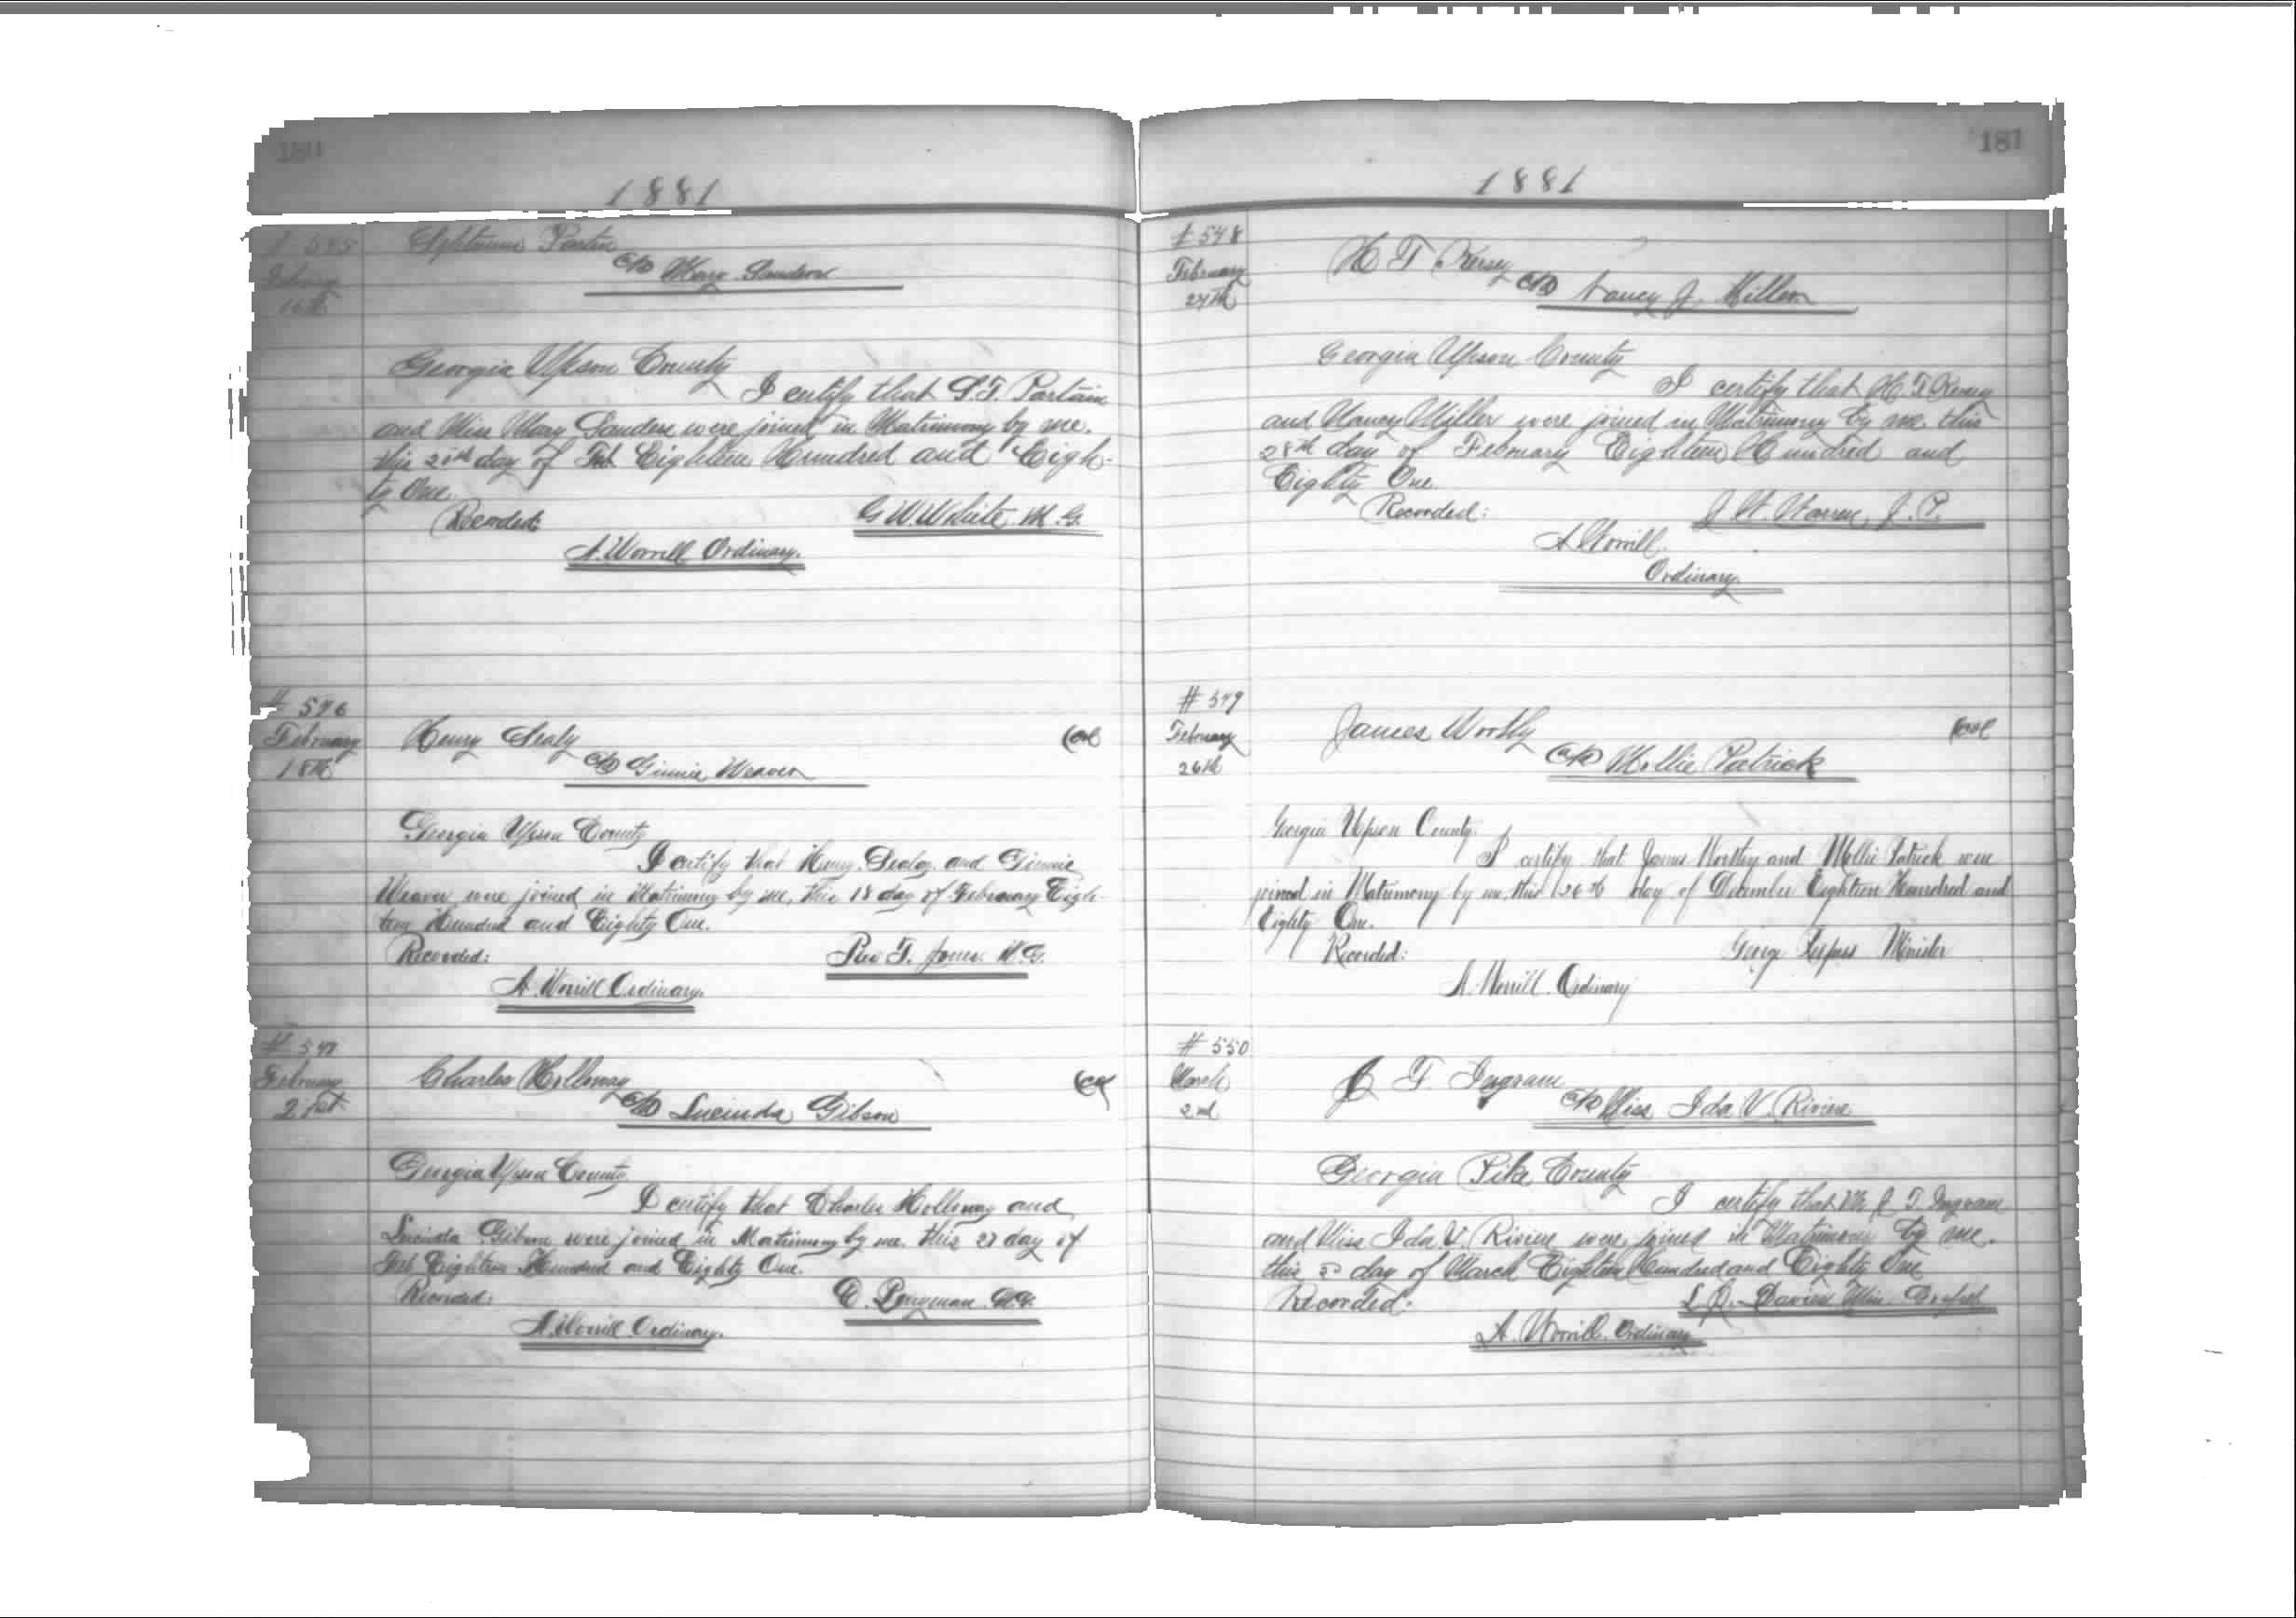 180
1881
# 545
February
16th
Partin
c/o Mary Sanders
Georgia Upson County
I certify that S. T. Partain
and Miss Mary Sanders were joined in Matrimony by me.
this 20th day of Feb Eighteen Hundred and Eigh-
ty One
Recorded:
G W White M. G.
A. Worrill Ordinary.
# 546
February
18th
Henry Sealy
(Col
c/o Ginnie Weaver
Georgia Upson County
I certify that Henry Sealey and Ginnie
Weaver were joined in Matrimony by me, this 18 day of February Eigh-
teen Hundred and Eighty One.
Recorded:
Rev T. Jones. M. G.
A. Worrill Ordinary.
# 547
February
21st
Charles Holloway
c/o Lucinda Gibson
Georgia Upson County
I certify that Charles Holloway and
Lucinda Gibson were joined in Matrimony by me. this 27 day of
Feb Eighteen Hundred and Eighty One.
Recorded:
A. Worrill Ordinary.
181
1881
# 548
February
27th
H T Kersey
c/o Nancy J. Miller
Georgia Upson County
I certify that H. T Kersey
and Nancy Miller were joined in Matrimony by me. this
28th day of February Eighteen Hundred and
Eighty One.
Recorded:
J W. Warren, J. P.
A Worrill.
Ordinary.
# 549
February
26th
James Worthy
(Col
c/o Mollie Patrick
Georgia Upson County.
I certify that James Worthy and Mollie Patrick were
joined in Matrimony by me, this 26th day of December Eighteen Hundred and
Eighty One.
Recorded:
George Respass Minister
A. Worrill. Ordinary
# 550
March
2nd
J T. Ingram
c/o Miss Ida V. Riviere
Georgia Pike County
I certify that Mr J. T. Ingram
and Miss Ida V. Riviere were joined in Matrimony by me.
this 3 day of March Eighteen Hundred and Eighty One
Recorded:
Davies Min. Gospel
A. Worrill. Ordinary